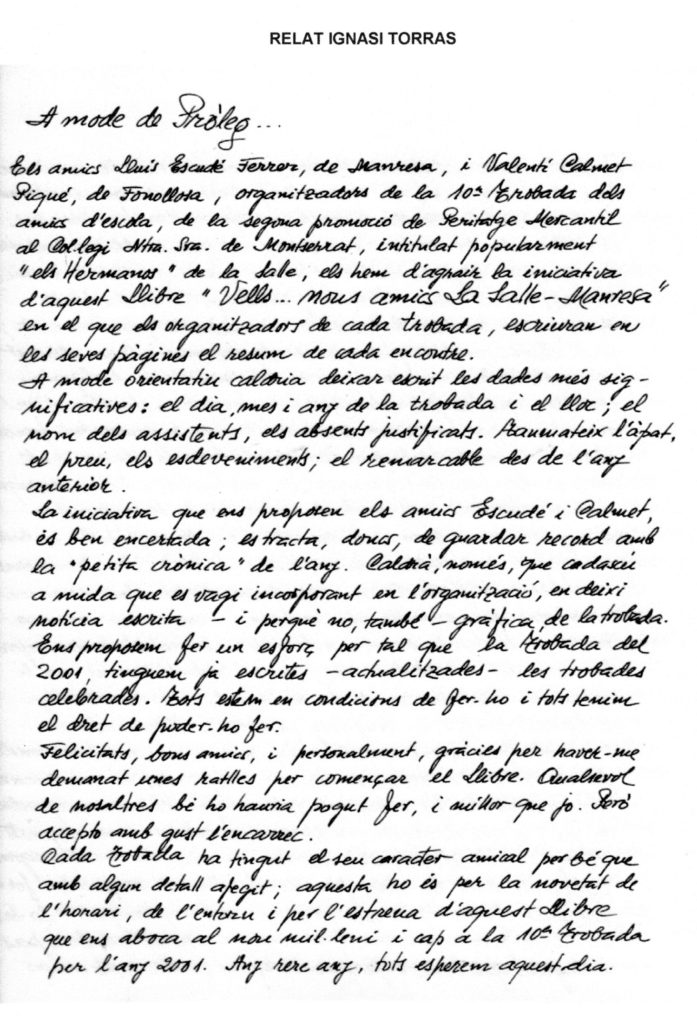 RELAT IGNASI TORRAS
A mode de Pròleg...
Els amics Lluís Escudé Ferrer, de Manresa, i Valentí Calmet
Piqué, de Fonollosa, organitzadors de la 10ª Trobada dels
amics d'escola, de la segona promoció de Peritatge Mercantil
al Col.legi Ntra. Sra. de Montserrat, intitulat popularment
"els Hermanos" de la Salle, els hem d'agrair la iniciativa
d'aquest Llibre "Vells... nous amics La Salle-Manresa"
en el que els organitzadors de cada trobada, escriuran en
les seves pàgines el resum de cada encontre.
A mode orientatiu caldria deixar escrit les dades més sig-
nificatives: el dia, mes i any de la trobada i el lloc; el
nom dels assistents, els absents justificats. Aanmateix l'àpat,
el preu, els esdeveniments; el remarcable des de l'any
anterior.
La iniciativa que ens proposen els amics Escudé i Calmet,
és ben encertada; es tracta, doncs, de guardar record amb
la "petita crònica" de l'any. Caldrà, només, que cadascú
a mida que es vagi incorporant en l'organització, en deixi
notícia escrita - i perquè no, també - gràfica, de la trobada.
Ens proposem fer un esforç per tal que la Trobada del
2001, tinguem ja escrites -actualitzades- les trobades
celebrades. Tots estem en condicions de fer-ho i tots tenim
el dret de poder-ho fer.
Felicitats, bons amics, i personalment, gràcies per haver-me
demanat unes ratlles per començar el Llibre. Qualsevol
de nosaltres bé ho hauria pogut fer, i millor que jo. Però
accepto amb gust l'encàrrec.
Cada Trobada ha tingut el seu caràcter amical per bé que
amb algun detall afegit; aquesta ho és per la novetat de
l'horari, de l'entorn i per l'estrena d'aquest Llibre
que ens aboca al nou mil·leni i cap a la 10ª Trobada
per l'any 2001. Any rere any, tots esperem aquest dia.